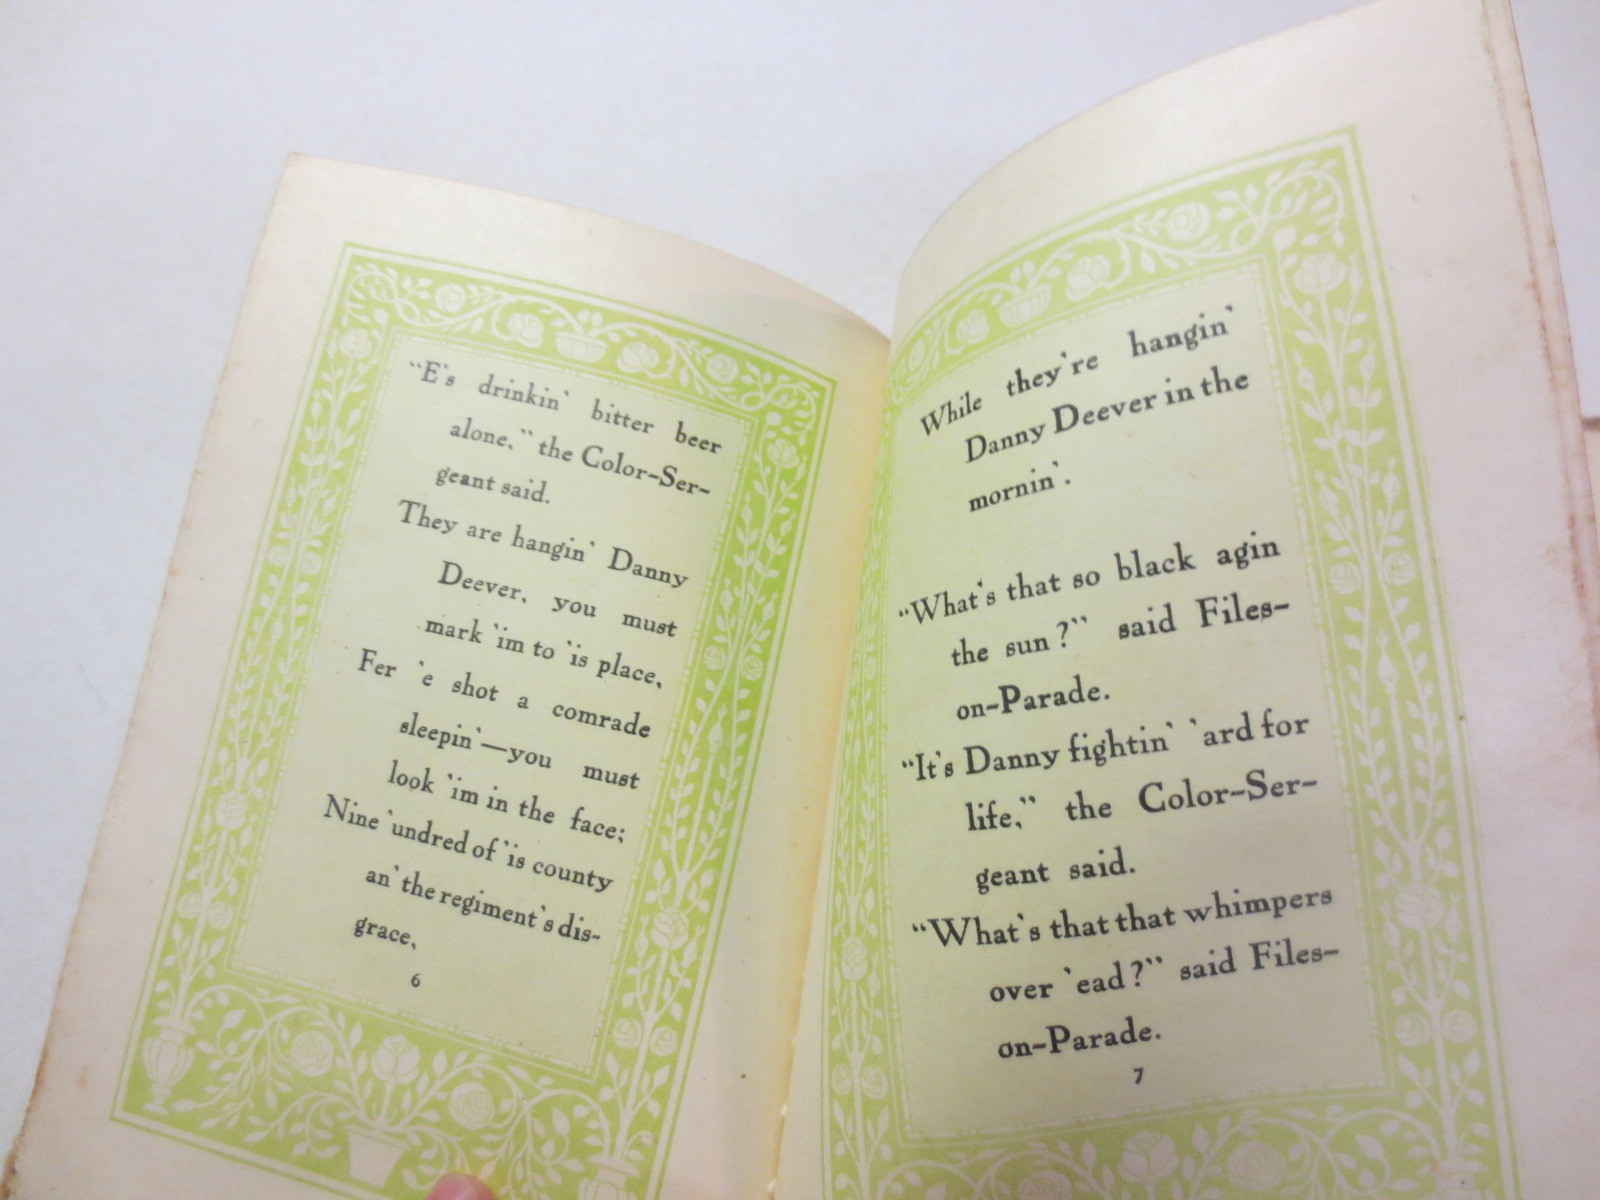 "E's drinkin' bitter beer
alone," the Color-Ser-
geant said.
They are hangin' Danny
Deever, you must
mark 'im to 'is place,
Fer 'e shot a comrade
sleepin'—you must
look 'im in the face;
Nine 'undred of 'is county
an' the regiment's dis-
grace,
6
While they're hangin'
Danny Deever in the
mornin'.
"What's that so black agin
the sun?" said Files-
on-Parade.
"It's Danny fightin' 'ard for
life," the Color-Ser-
geant said.
"What's that that whimpers
over 'ead?" said Files-
on-Parade.
7